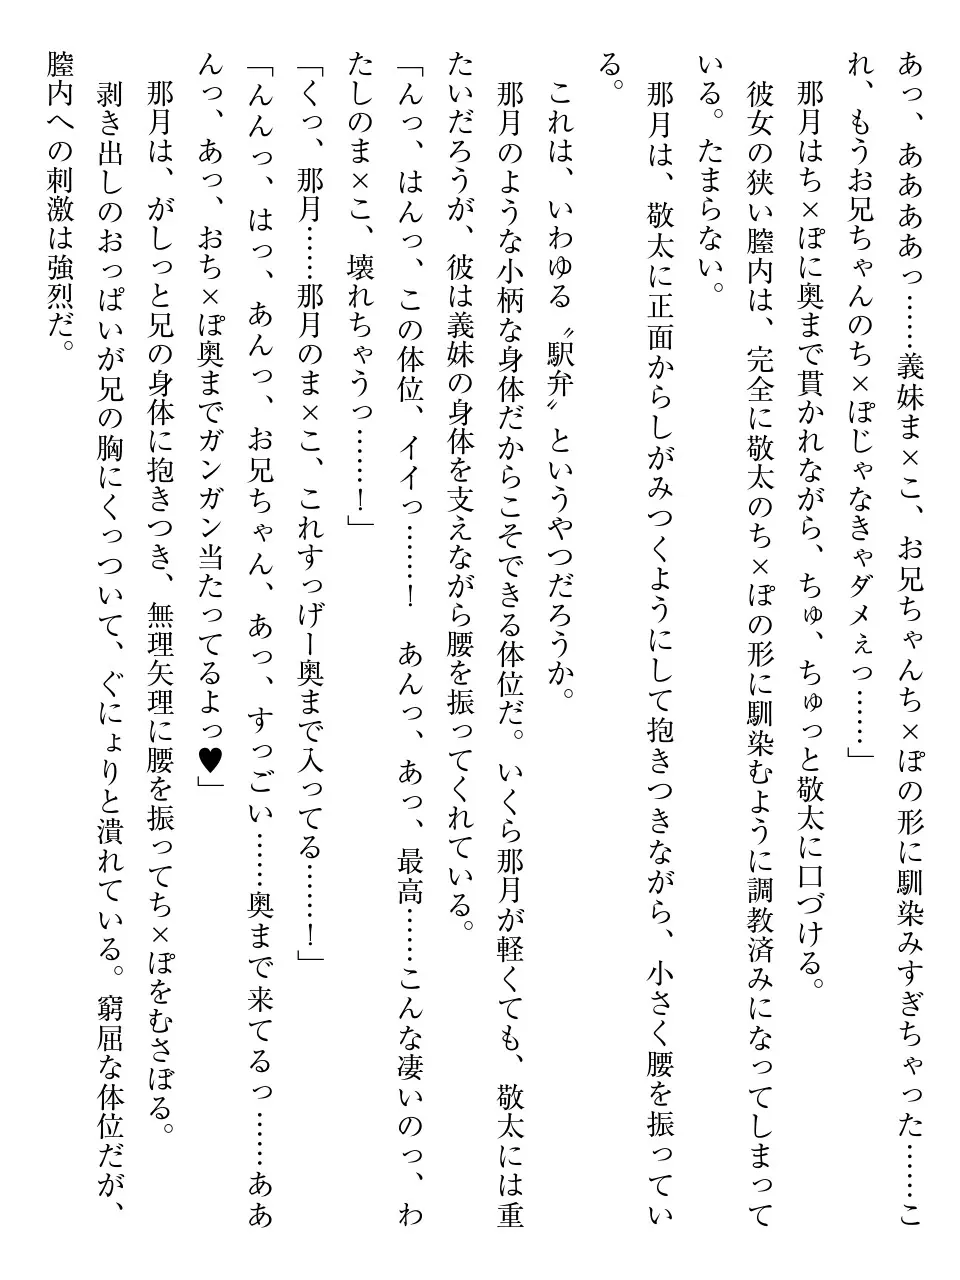 あっ、ああああっ……義妹ま×こ、お兄ちゃんち×ぽの形に馴染みすぎちゃった……こ
れ、もうお兄ちゃんのち×ぽじゃなきゃダメぇっ……」
那月はち×ぽに奥まで貫かれながら、ちゅ、ちゅっと敬太に口づける。
彼女の狭い膣内は、完全に敬太のち×ぽの形に馴染むように調教済みになってしまって
いる。たまらない。
那月は、敬太に正面からしがみつくようにして抱きつきながら、小さく腰を振ってい
る。
これは、いわゆる〝駅弁〟というやつだろうか。
那月のような小柄な身体だからこそできる体位だ。いくら那月が軽くても、敬太には重
たいだろうが、彼は義妹の身体を支えながら腰を振ってくれている。
「んっ、はんっ、この体位、イイっ……！　あんっ、あっ、最高……こんな凄いのっ、わ
たしのま×こ、壊れちゃうっ……！」
「くっ、那月……那月のま×こ、これすっげー奥まで入ってる……！」
「んんっ、はっ、あんっ、お兄ちゃん、あっ、すっごい……奥まで来てるっ……ああ
んっ、あっ、おち×ぽ奥までガンガン当たってるよっ♥」
那月は、がしっと兄の身体に抱きつき、無理矢理に腰を振ってち×ぽをむさぼる。
剥き出しのおっぱいが兄の胸にくっついて、ぐにょりと潰れている。窮屈な体位だが、
膣内への刺激は強烈だ。